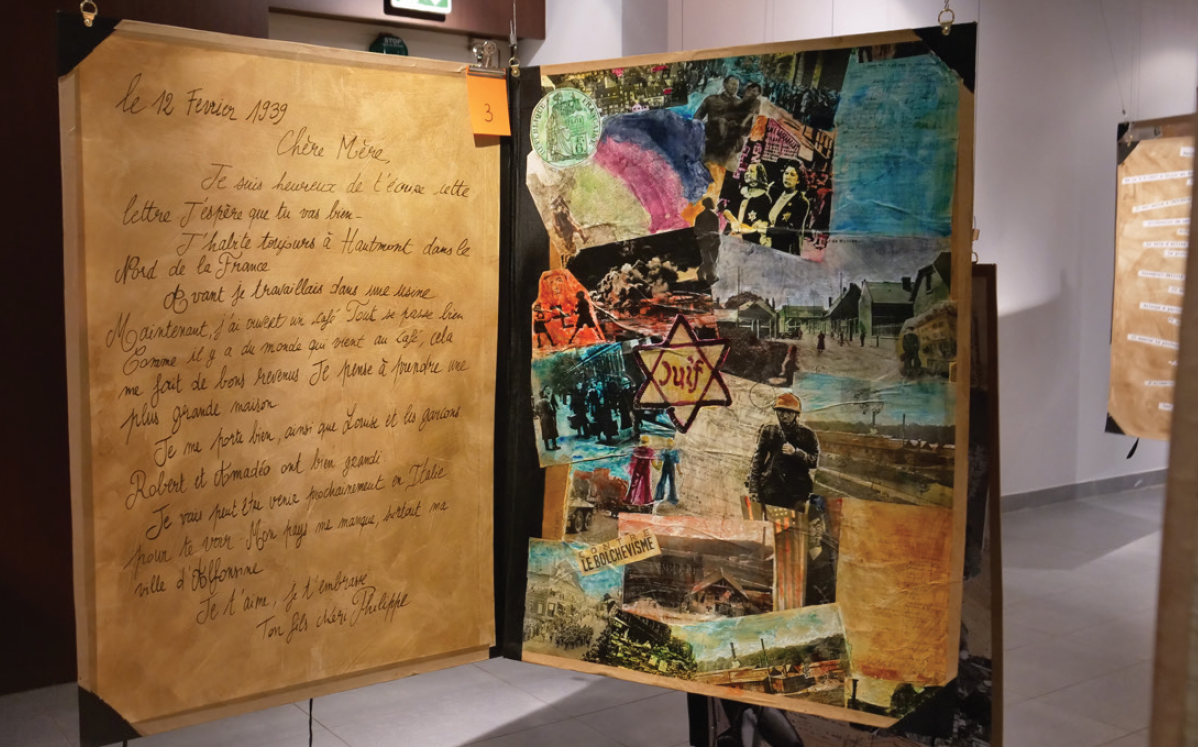 le 12 Février 1939
Chère Mère
Je suis heureux de t'écrire cette
lettre J'espère que tu vas bien.
J'habite toujours à Hautmont dans le
Nord de la France
Avant je travaillais dans une usine
Maintenant, j'ai ouvert un café Tout se passe bien
Comme il y a du monde qui vient au café, cela
me fait de bons revenus Je pense à prendre une
plus grande maison
Je me porte bien, ainsi que Louise et les garçons
Robert et Amadéo ont bien grandi
Je vais peut être venir prochainement en Italie
pour te voir. Mon pays me manque, surtout ma
ville d'Alfonsine
Je t'aime, je t'embrasse
Ton fils chéri Philippe
3
Juif
CONTRE
LE BOLCHEVISME
STOP